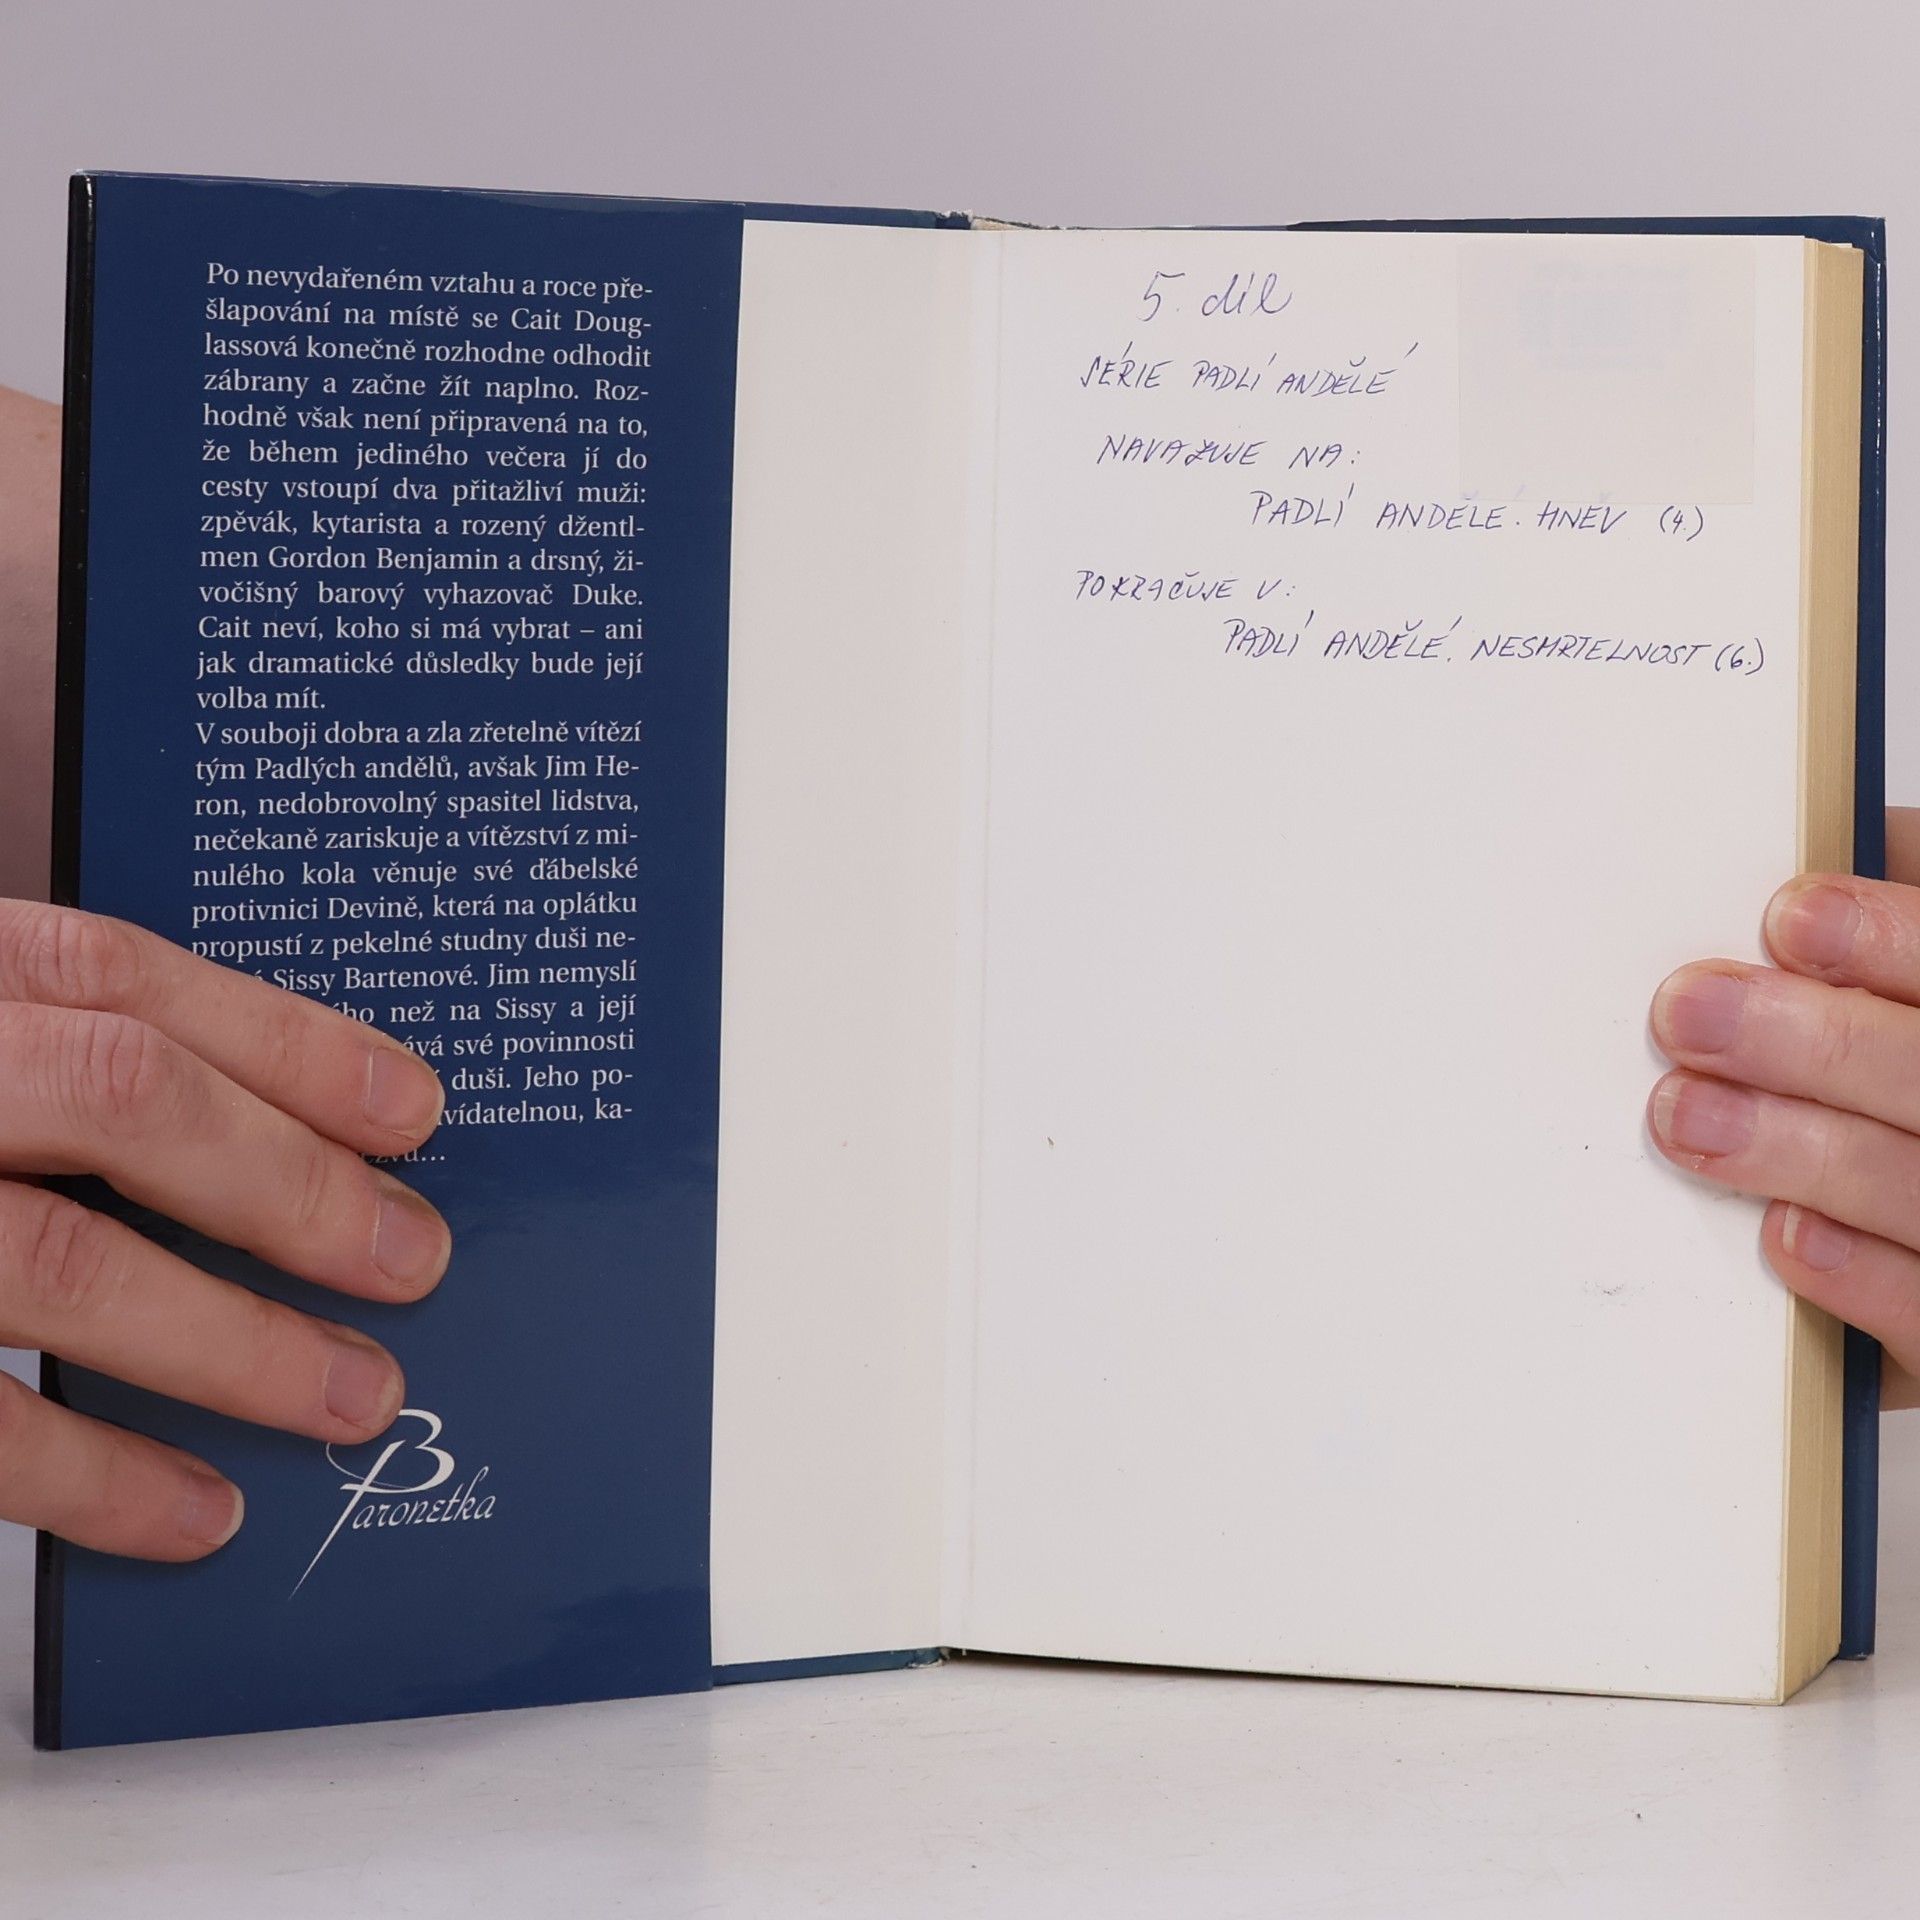 Po nevydařeném vztahu a roce pře-
šlapování na místě se Cait Doug-
lassová konečně rozhodne odhodit
zábrany a začne žít naplno. Roz-
hodně však není připravená na to,
že během jediného večera jí do
cesty vstoupí dva přitažliví muži:
zpěvák, kytarista a rozený džentl-
men Gordon Benjamin a drsný, ži-
vočišný barový vyhazovač Duke.
Cait neví, koho si má vybrat – ani
jak dramatické důsledky bude její
volba mít.
V souboji dobra a zla zřetelně vítězí
tým Padlých andělů, avšak Jim He-
ron, nedobrovolný spasitel lidstva,
nečekaně zariskuje a vítězství z mi-
nulého kola věnuje své ďábelské
protivnici Devině, která na oplátku
propustí z pekelné studny duši ne-
Sissy Bartenové. Jim nemyslí
než na Sissy a její
své povinnosti
duši. Jeho po-
ka-
Baronetka
5. díl
SÉRIE PADLÍ ANDĚLÉ
NAVAZUJE NA:
PADLÍ ANDĚLÉ. HNĚV (4.)
POKRAČUJE V:
PADLÍ ANDĚLÉ. NESMRTELNOST (6.)